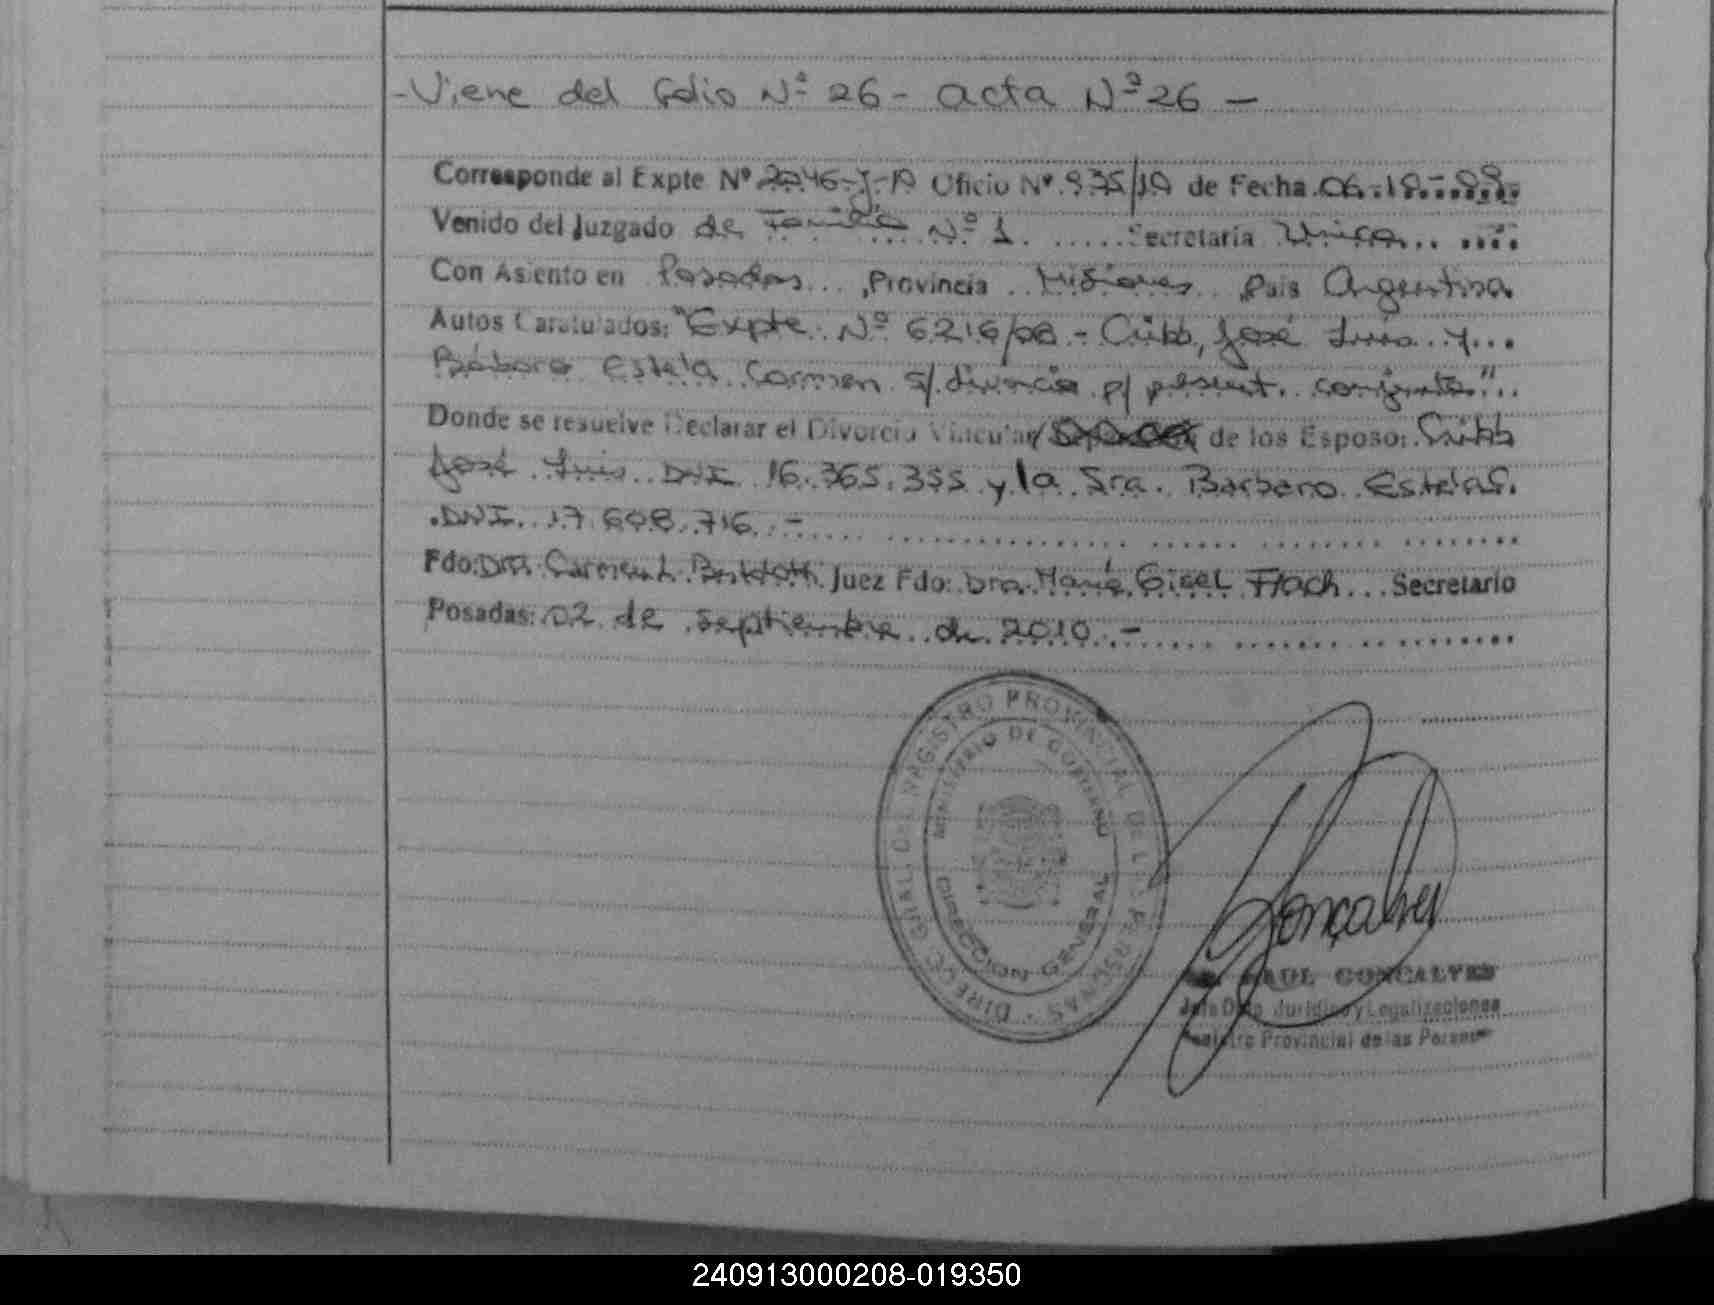 - Viene del folio Nº 26 - acta Nº 26 -
Corresponde al Expte Nº Oficio Nº 935/10 de Fecha
Venido del Juzgado de Familia Nº 1. Secretaría Única
Con Asiento en Posadas... ,Provincia .. Misiones .. País Argentina.
Autos Caratulados: "Expte. Nº 6216/08 - Cubb, José Luis y...
Bárbaro Estela Carmen s/ divorcio p/ present. conjunta"..
Donde se resuelve Declarar el Divorcio Vincular/ de los Esposo: Cubb
José Luis DNI 16.365.355 y la Sra. Barbaro Estela C.
.DNI. 17.608.716. -
Fdo: Dra. Carmen Juez Fdo: Dra. María Gisel Flach... Secretario
Posadas: 02 de septiembre de 2010. -
DIRECC GRAL DEL REGISTRO PROVINCIAL DE LAS PERSONAS
MINISTERIO DE GOBIERNO
DIRECCION GENERAL
Gonçalves
RAUL GONCALVES
Jefe Dpto Jurídico y Legalizaciones
Registro Provincial de las Personas
240913000208-019350